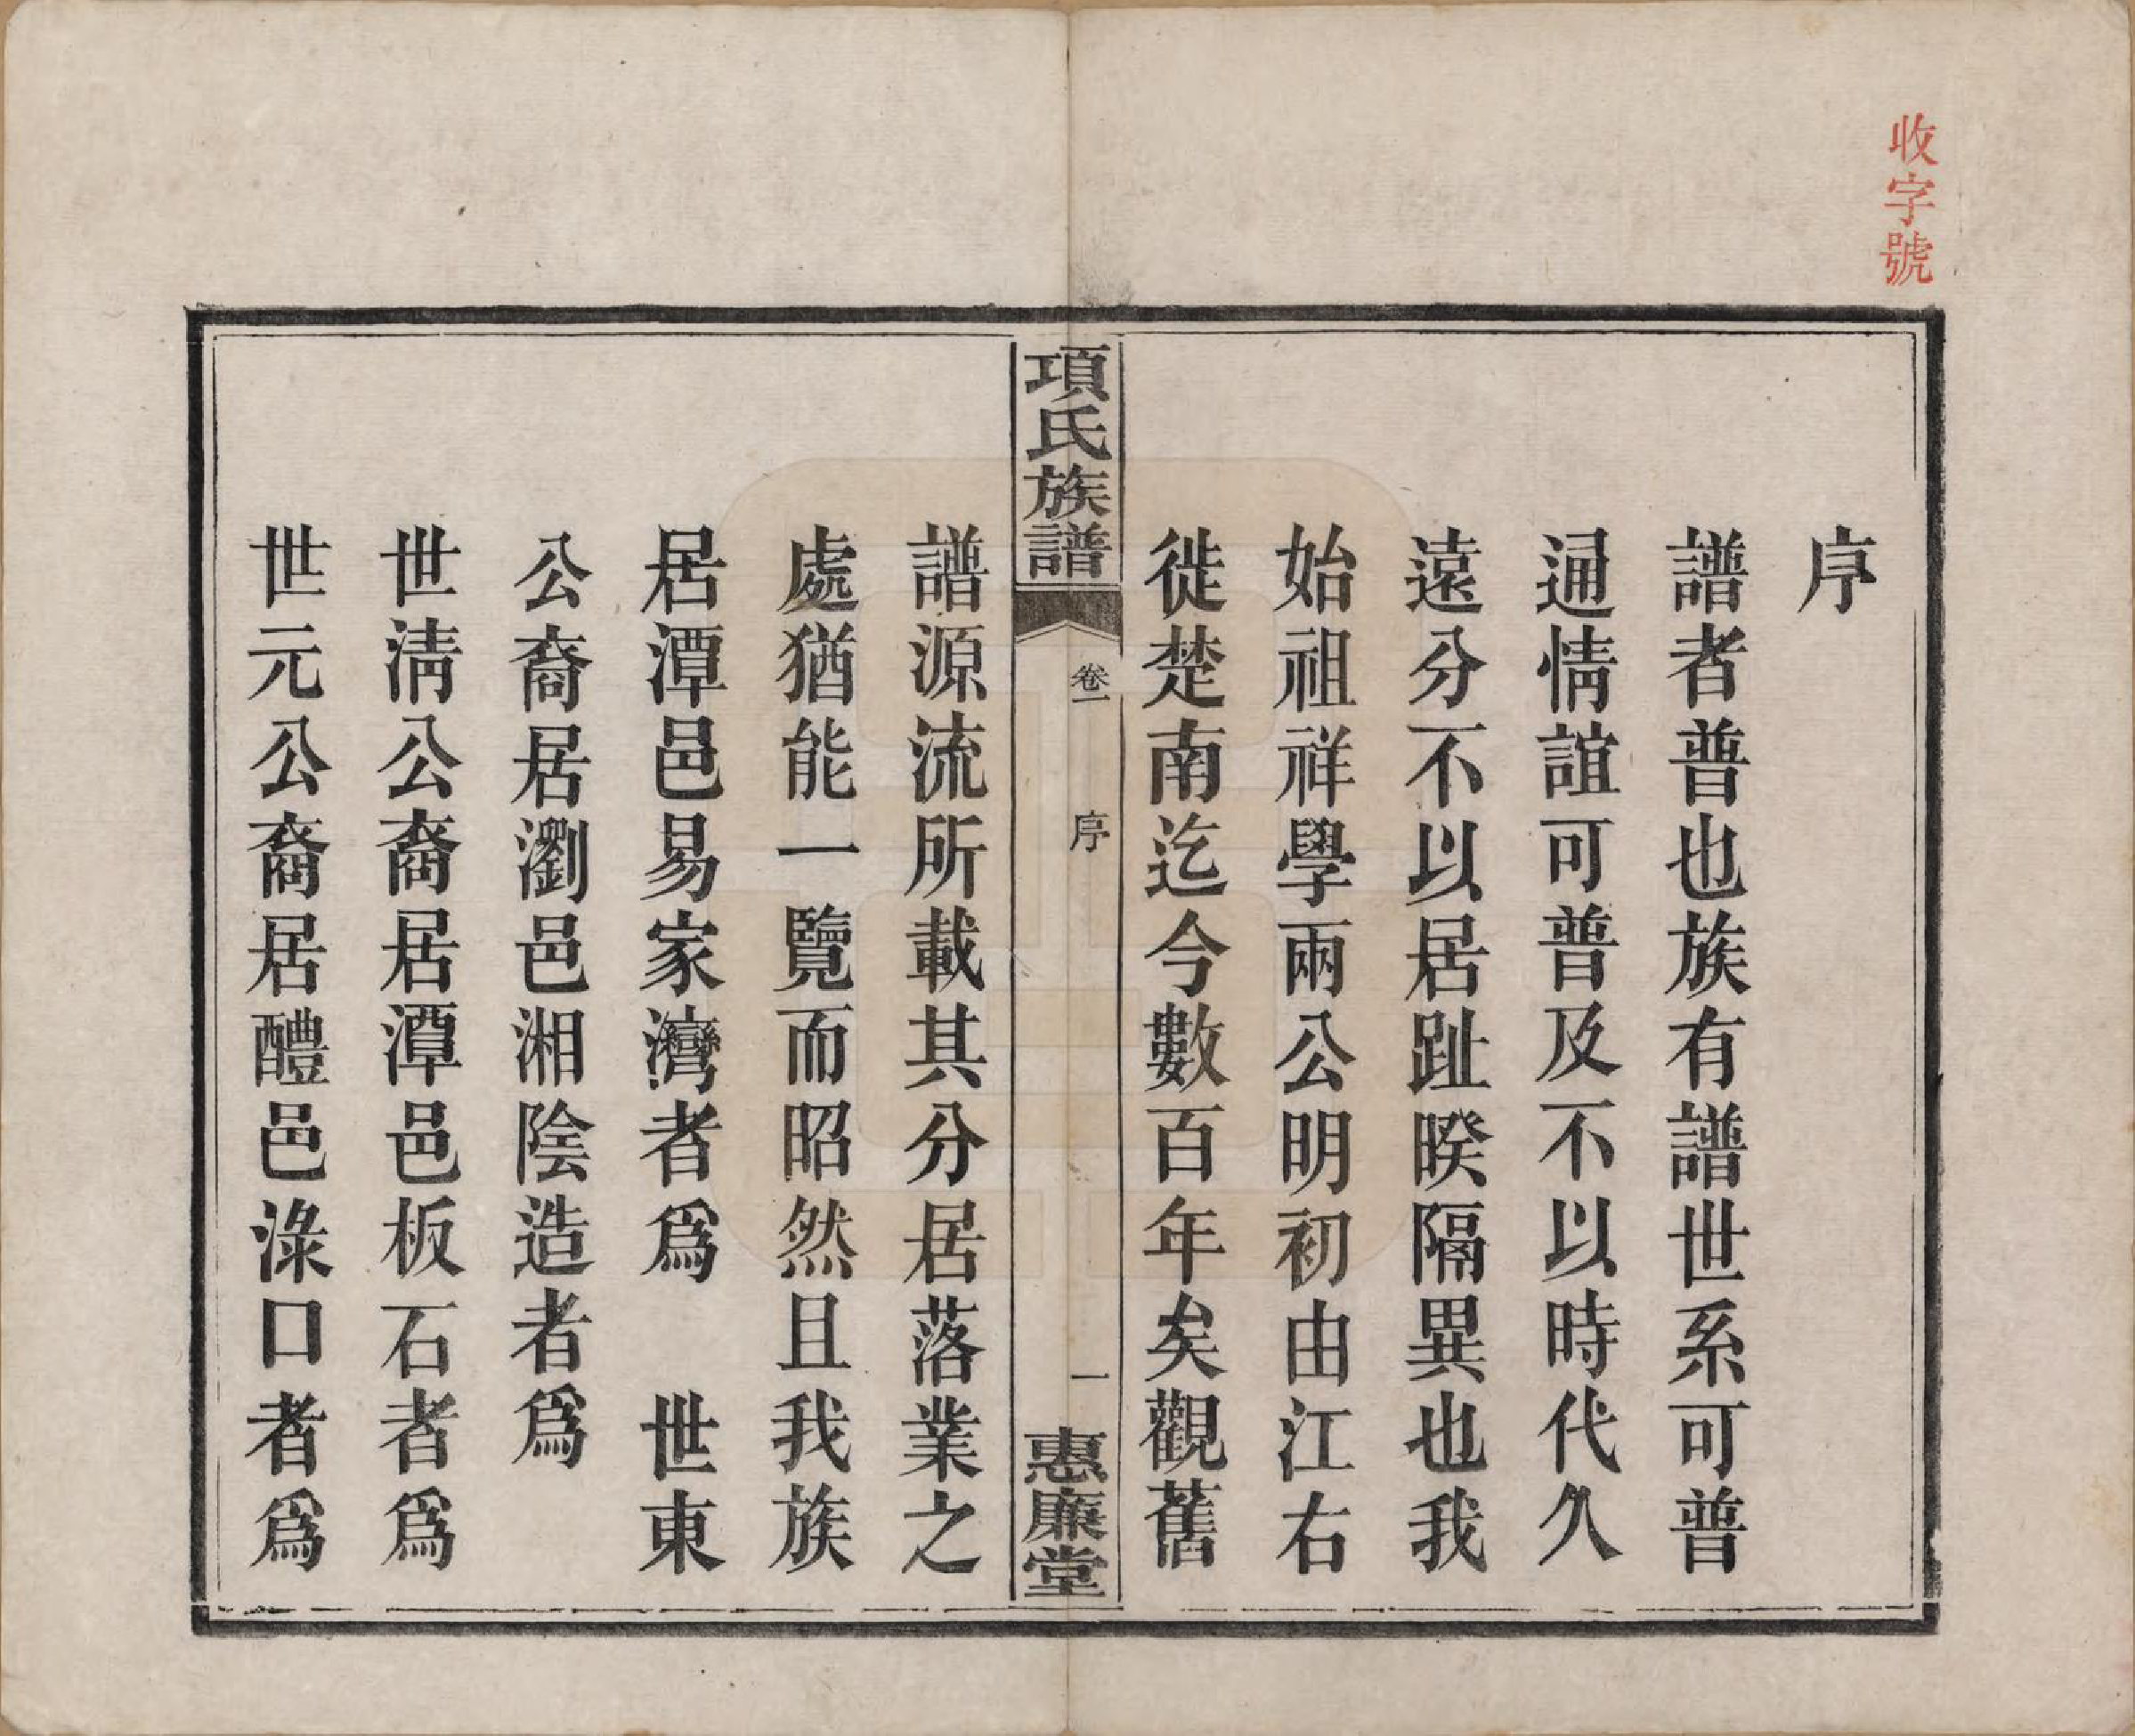 收字號
序
譜者普也族有譜世系可普
通情誼可普及不以時代久
遠分不以居趾暌隔異也我
始祖祥學兩公明初由江右
徙楚南迄今數百年矣觀舊
項氏族譜 卷一 序 一 惠廉堂
譜源流所載其分居落業之
處猶能一覽而昭然且我族
居潭邑易家灣者爲 世東
公裔居瀏邑湘陰造者爲
世清公裔居潭邑板石者爲
世元公裔居醴邑淥口者爲